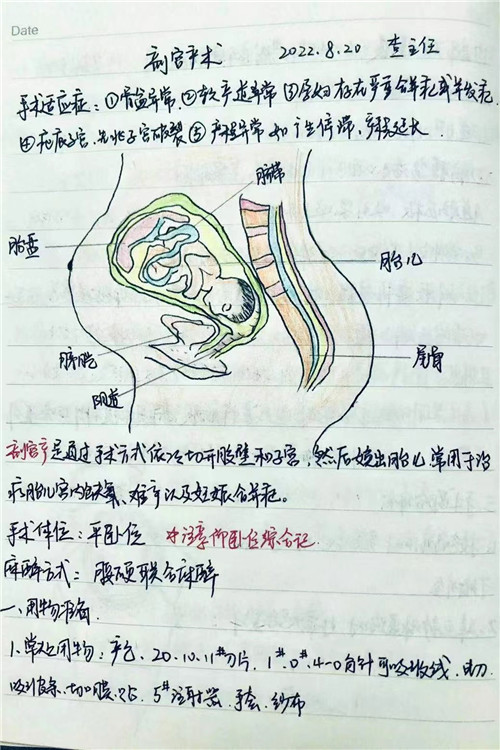 Date
剖宫产术 2022.8.20 查主任
手术适应症：①骨盆异常，②软产道异常 ③孕妇存在严重合并症或并发症
④疤痕子宫，先兆子宫破裂⑤产程异常如产程停滞，产程延长
脐带
胎盘
胎儿
膀胱
尾骨
阴道
剖宫产是通过手术方式依次切开腹壁和子宫，然后娩出胎儿，常用于治
疗胎儿宫内缺氧、难产以及妊娠合并症。
手术体位：平卧位 *注意仰卧位综合征
麻醉方式：腰硬联合麻醉
一、用物准备
1.常规用物：产包、20.10.11#刀片、1#.0#.4-0角针可吸收线、电刀
吸引器条、切口膜、5#注射器、手套、纱布